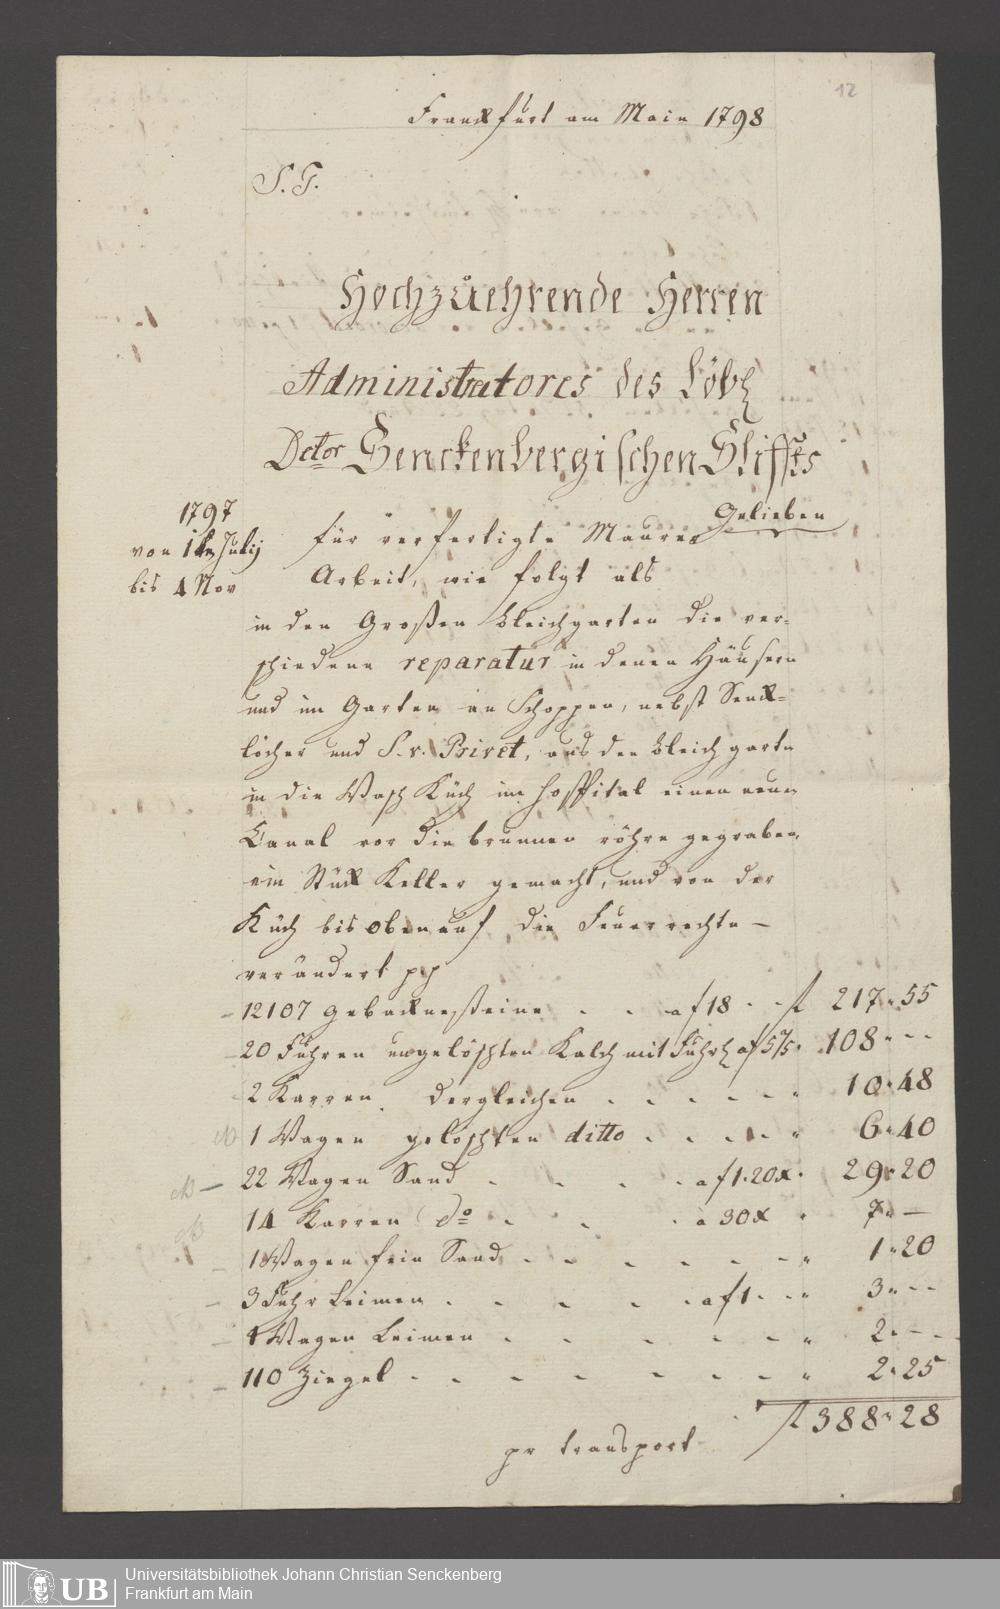 12
Franckfurt am Main 1798
S. T.
Hochzuehrende Herren
Administratores des Löbl
Dctor Senckenbergischen Stiffts
Gelieben
1797
von 1ten Julij
bis 4 Nov
für verfertigte Maurer
Arbeit, wie folgt als
in den Großen Bleichgarten die ver-
schiedene reparatur in denen Häusern
und im Garten an Schoppen, nebst Senck-
löcher und S. v. Privet, aus den Bleichgarte
in die Wasch Küch im Hospital einen neuen
Canal vor die brunnen röhre gegraben,
ein Stück Keller gemacht, und von der
Küch bis oben auf die Feuerrechte –
verändert pp
12107 gebacknesteine - - a f 18 - - fl 217 " 55
20 Fuhren ungelöschten Kalch mit Fuhrl a f 5 2/5 " 108 " - -
2 Karren dergleichen - - - - - " 10 " 48
1 Wagen gelöschten ditto - - - - " 6 " 40
22 Wagen Sand - - - a f 1 " 20 x " 29 " 20
14 Karren do - - - a 30 x " 7 " —
1 Wagen fein Sand - - - - - - " 1 " 20
3 Fuhr Leimen - - - - - a f 1 - - " 3 " - -
1 Wagen Leimen - - - - - - " 2 " - -
110 Ziegel - - - - - - - - " 2 " 25
fl 388 " 28
pr transport
UB
Universitätsbibliothek Johann Christian Senckenberg
Frankfurt am Main